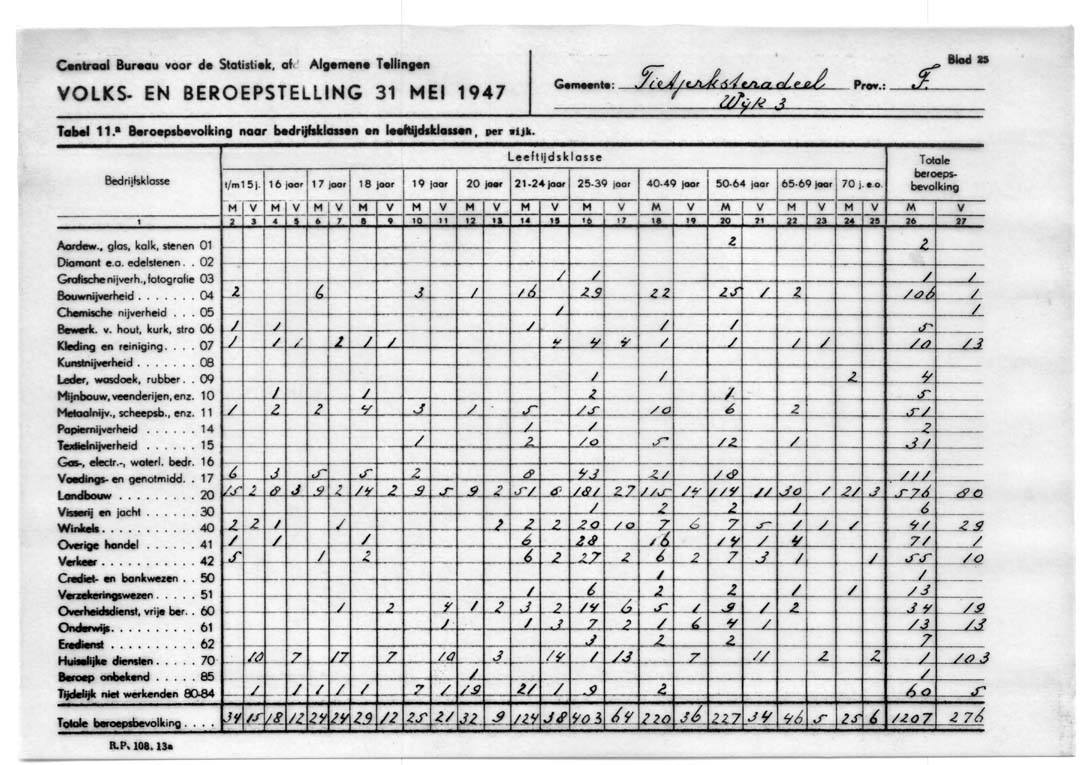 Centraal Bureau voor de Statistiek, afd Algemene Tellingen
VOLKS- EN BEROEPSTELLING 31 MEI 1947
Gemeente: Tietjerksteradeel Prov.: F. Blad 25
Wijk 3
Tabel 11.a Beroepsbevolking naar bedrijfsklassen en leeftijdsklassen, per wijk.
Bedrijfsklasse Leeftijdsklasse Totale beroeps-bevolking
t/m 15 j. 16 jaar 17 jaar 18 jaar 19 jaar 20 jaar 21-24 jaar 25-39 jaar 40-49 jaar 50-64 jaar 65-69 jaar 70 j. e.o.
M V M V M V M V M V M V M V M V M V M V M V M V M V
1 2 3 4 5 6 7 8 9 10 11 12 13 14 15 16 17 18 19 20 21 22 23 24 25 26 27
Aardew., glas, kalk, stenen 01 2 2
Diamant e.a. edelstenen . . 02
Grafische nijverh., fotografie 03 1 1 1 1
Bouwnijverheid . . . . . . . 04 2 6 3 1 16 29 22 25 1 2 106 1
Chemische nijverheid . . . 05 1 1
Bewerk. v. hout, kurk, stro 06 1 1 1 1 1 5
Kleding en reiniging . . . . 07 1 1 1 2 1 1 4 4 4 1 1 1 1 10 13
Kunstnijverheid . . . . . . . 08
Leder, wasdoek, rubber . . 09 1 1 2 4
Mijnbouw, veenderijen, enz. 10 1 1 2 1 5
Metaalnijv., scheepsb., enz. 11 1 2 2 4 3 1 5 15 10 6 2 51
Papiernijverheid . . . . . . 14 1 1 2
Textielnijverheid . . . . . . 15 1 2 10 5 12 1 31
Gas-, electr.-, waterl. bedr. 16
Voedings- en genotmidd. . 17 6 3 5 5 2 8 43 21 18 111
Landbouw . . . . . . . . . 20 15 2 8 3 9 2 14 2 9 5 9 2 51 8 181 27 115 14 114 11 30 1 21 3 576 80
Visserij en jacht . . . . . . 30 1 2 2 1 6
Winkels . . . . . . . . . . . 40 2 2 1 1 2 2 2 20 10 7 6 7 5 1 1 1 41 29
Overige handel . . . . . . . 41 1 1 1 6 28 16 14 1 4 71 1
Verkeer . . . . . . . . . . . 42 5 1 2 6 2 27 2 6 2 7 3 1 1 55 10
Crediet- en bankwezen . . 50 1 1
Verzekeringswezen . . . . . 51 1 6 2 2 1 1 13
Overheidsdienst, vrije ber. . 60 1 2 4 1 2 3 2 14 6 5 1 9 1 2 34 19
Onderwijs . . . . . . . . . . 61 1 1 3 7 2 1 6 4 1 13 13
Eredienst . . . . . . . . . . 62 3 2 2 7
Huiselijke diensten . . . . . 70 10 7 17 7 10 3 14 1 13 7 11 2 2 1 103
Beroep onbekend . . . . . 85 1 1
Tijdelijk niet werkenden 80-84 1 1 1 1 1 7 1 19 21 1 9 2 60 5
Totale beroepsbevolking . . . . 34 15 18 12 24 24 29 12 25 21 32 9 124 38 403 64 220 36 227 34 46 5 25 6 1207 276
R.P. 108. 13a